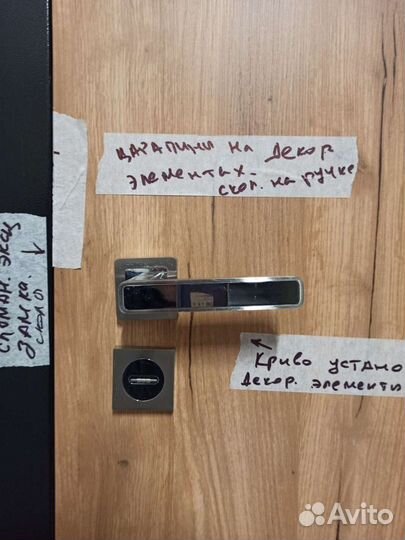 царапины на декор
элементах.
скол. на ручке
сломан. эксц
замка.
скол
Криво устано
декор. элементы
Avito